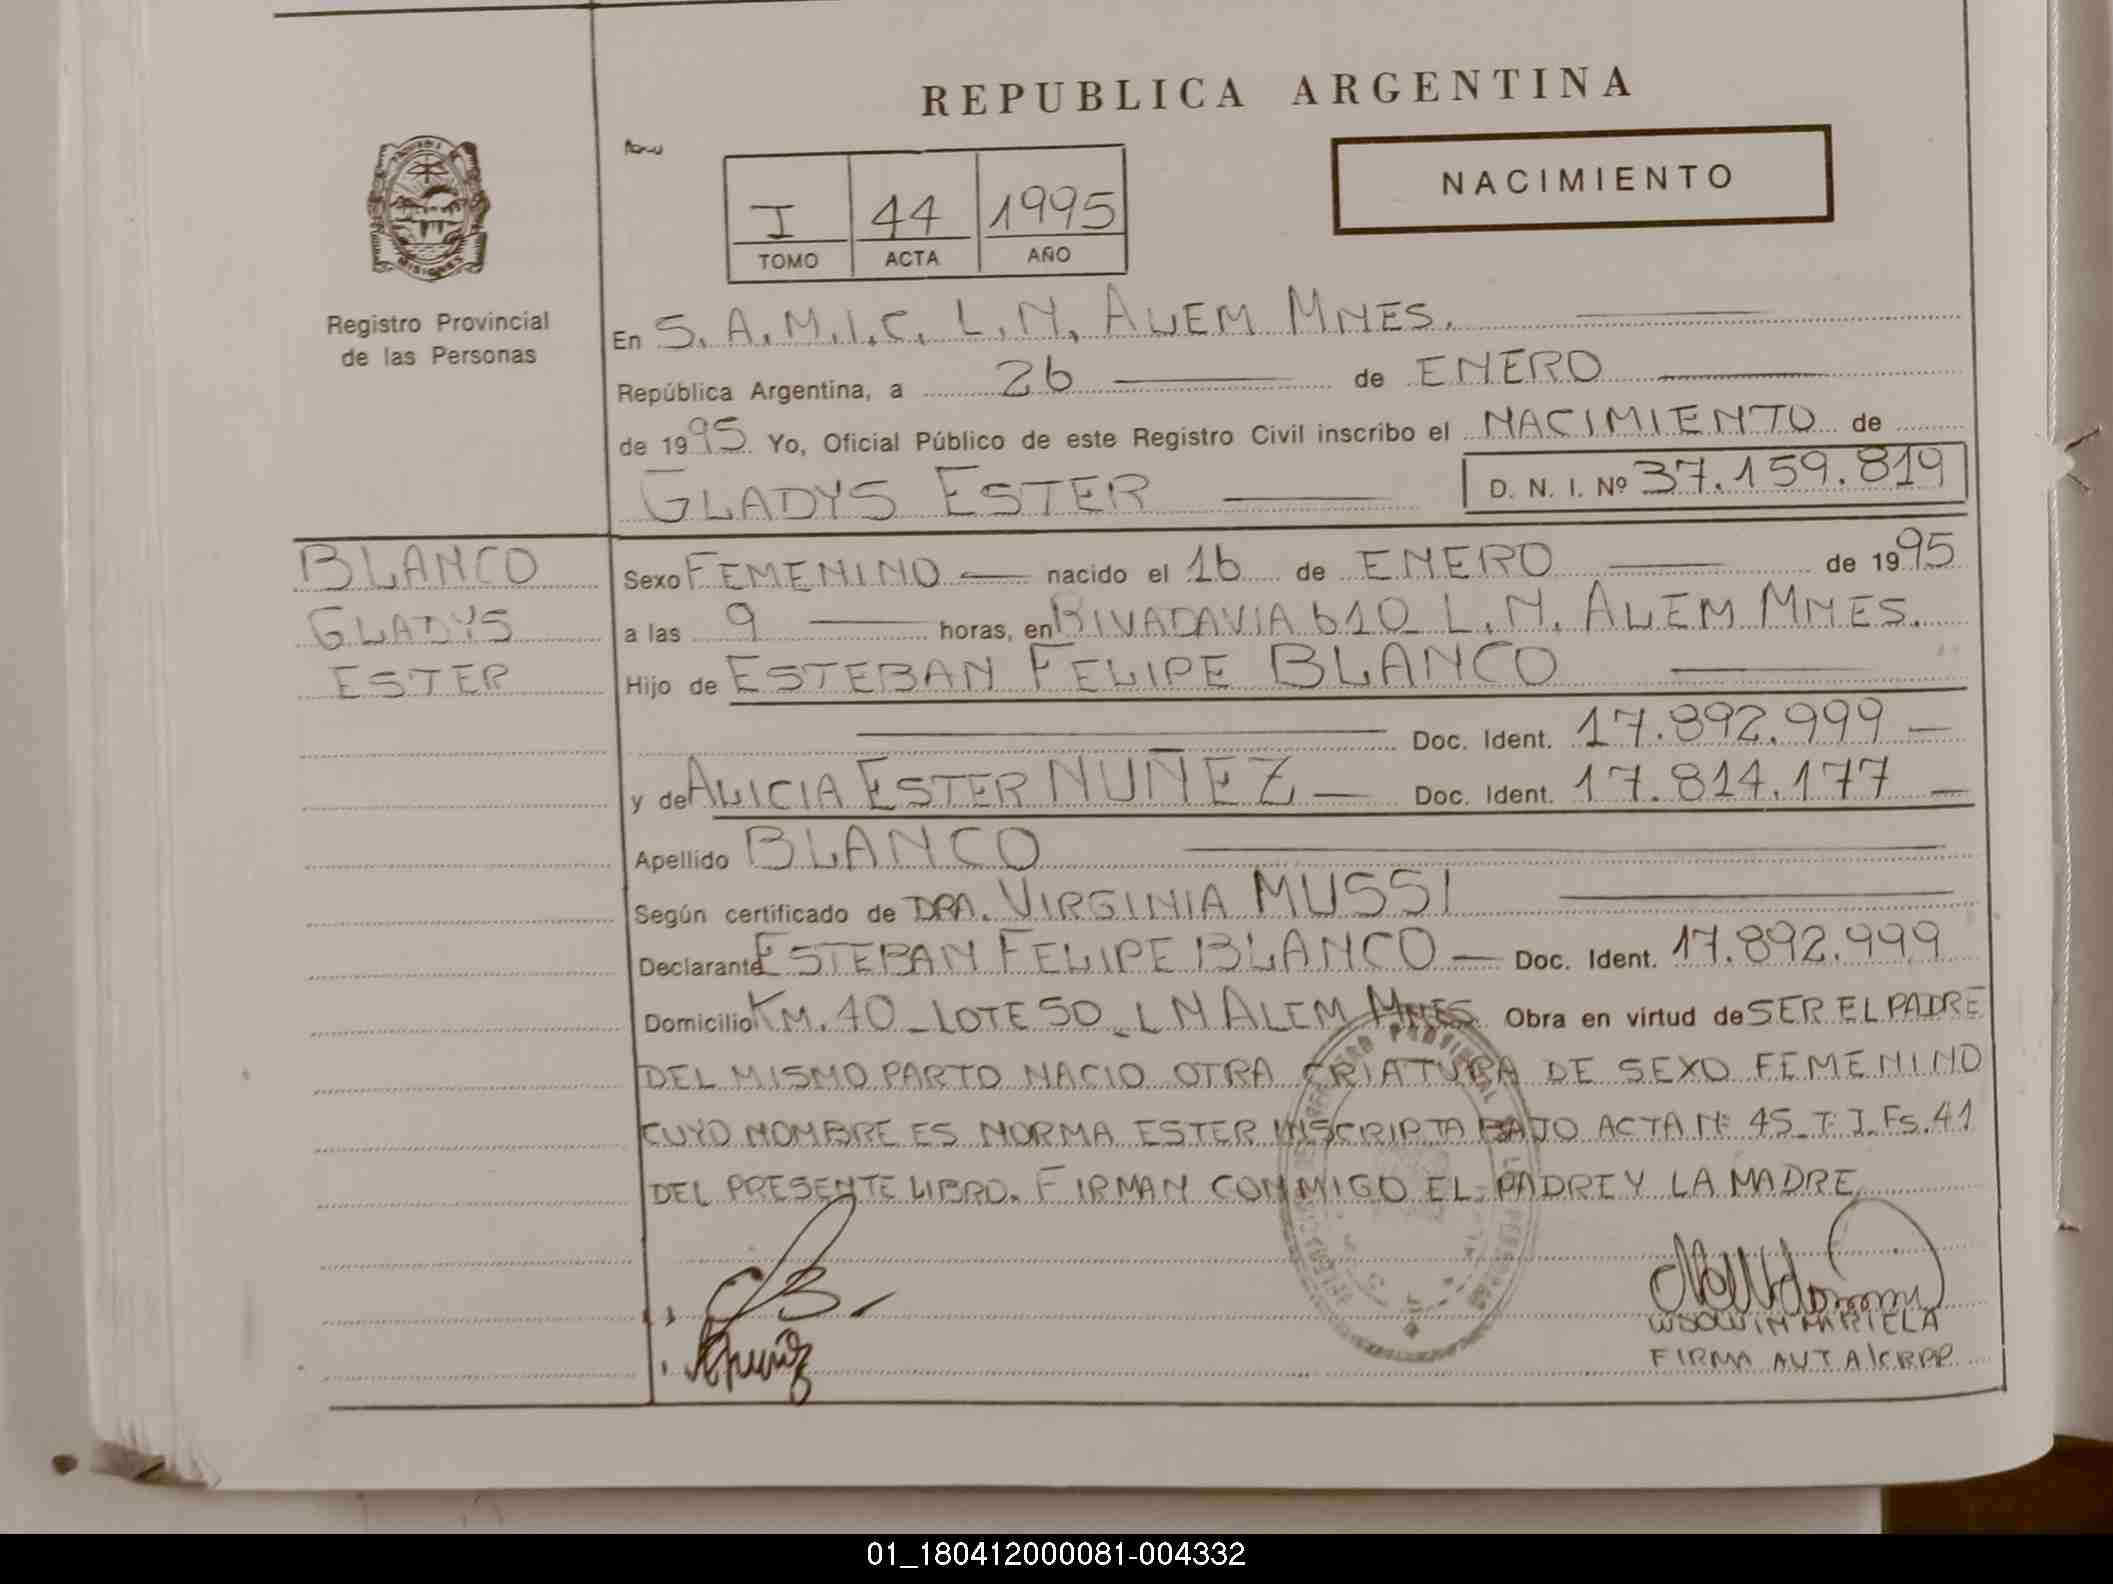 REPUBLICA ARGENTINA
NACIMIENTO
I 44 1995
TOMO ACTA AÑO
MISIONES
Registro Provincial
de las Personas
En S.A.M.I.C. L.N. ALEM MNES.
República Argentina, a 26 de ENERO
de 1995 Yo, Oficial Público de este Registro Civil inscribo el NACIMIENTO de
GLADYS ESTER D. N. I. Nº 37.159.819
BLANCO
GLADYS
ESTER
Sexo FEMENINO nacido el 16 de ENERO de 1995
a las 9 horas, en RIVADAVIA 610 L.N. ALEM MNES.
Hijo de ESTEBAN FELIPE BLANCO
Doc. Ident. 17.892.999
y de ALICIA ESTER NUÑEZ Doc. Ident. 17.814.177
Apellido BLANCO
Según certificado de DRA. VIRGINIA MUSSI
Declarante ESTEBAN FELIPE BLANCO Doc. Ident. 17.892.999
Domicilio KM. 40 - LOTE 50 - L N ALEM MNES Obra en virtud de SER EL PADRE
DEL MISMO PARTO NACIO OTRA CRIATURA DE SEXO FEMENINO
CUYO NOMBRE ES NORMA ESTER INSCRIPTA BAJO ACTA Nº 45 - T: I. Fs. 41
DEL PRESENTE LIBRO. FIRMAN CONMIGO EL PADRE Y LA MADRE
MARIELA
FIRMA AUT A/C RPP
01_180412000081-004332